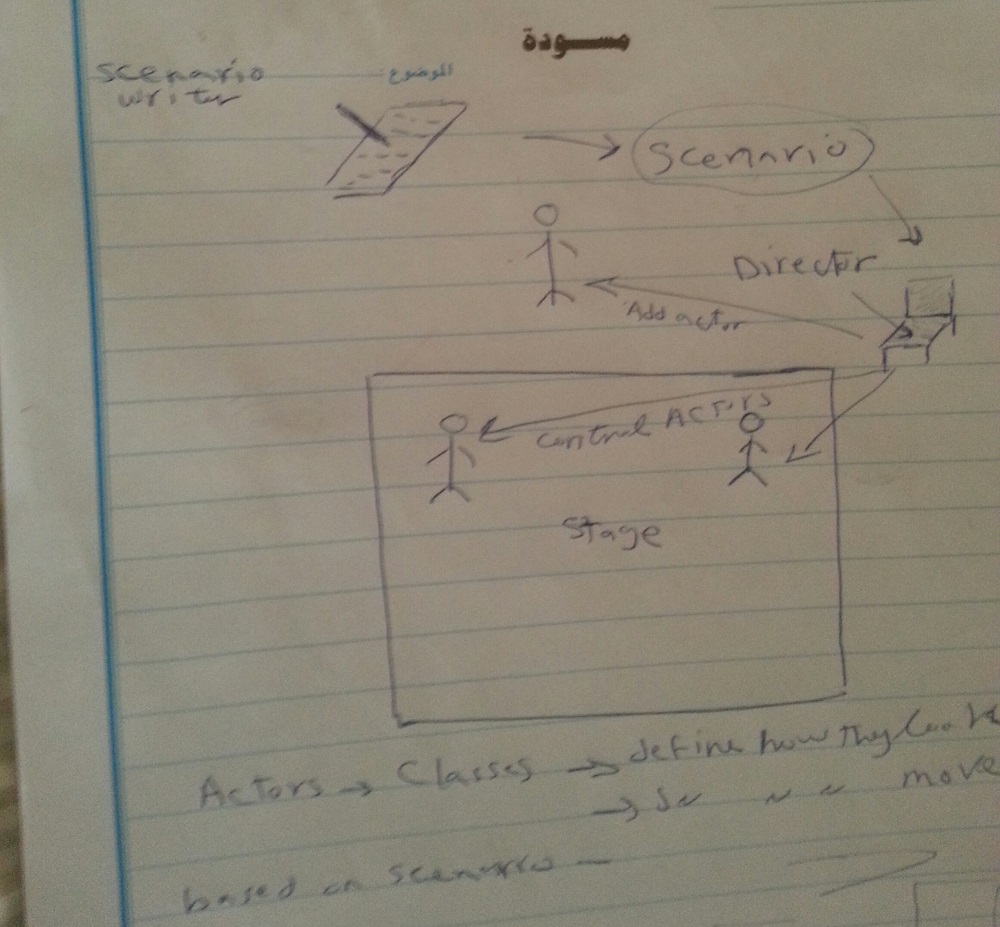 مسودة
الموضوع:
scenario
writer
Scenario
Director
Add actor
Control ACTors
Stage
Actors → Classes → define how they look
→ d~ ~ ~ move
based on scenario —